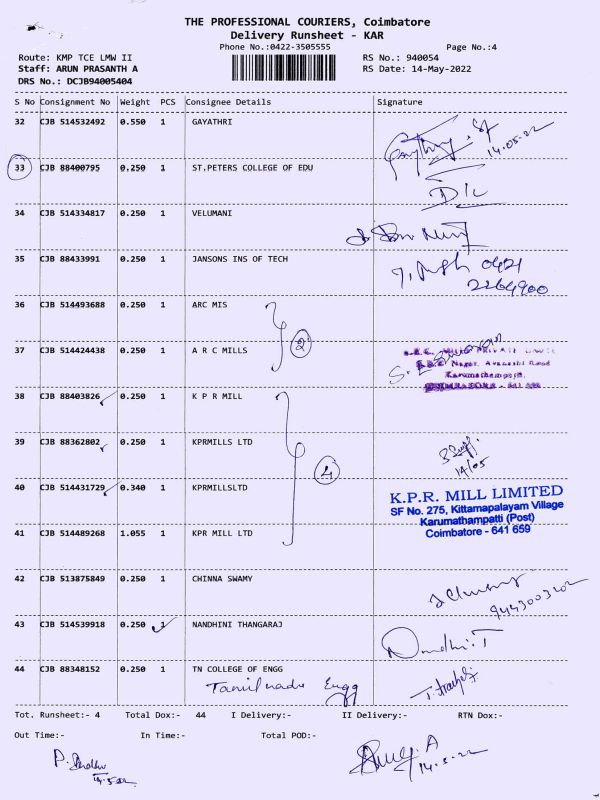 THE PROFESSIONAL COURIERS, Coimbatore
Delivery Runsheet - KAR
Phone No.:0422-3505555
Page No.:4
Route: KMP TCE LMW II
RS No.: 940054
Staff: ARUN PRASANTH A
RS Date: 14-May-2022
DRS No.: DCJB94005404
S No Consignment No Weight PCS Consignee Details Signature
32 CJB 514532492 0.550 1 GAYATHRI
14.05.22
33 CJB 88400795 0.250 1 ST.PETERS COLLEGE OF EDU
D/L
34 CJB 514334817 0.250 1 VELUMANI
35 CJB 88433991 0.250 1 JANSONS INS OF TECH
0421
2264900
36 CJB 514493688 0.250 1 ARC MIS
2
37 CJB 514424438 0.250 1 A R C MILLS
38 CJB 88403826 0.250 1 K P R MILL
39 CJB 88362802 0.250 1 KPRMILLS LTD
14/05
4
40 CJB 514431729 0.340 1 KPRMILLSLTD
K.P.R. MILL LIMITED
SF No. 275, Kittamapalayam Village
Karumathampatti (Post)
Coimbatore - 641 659
41 CJB 514489268 1.055 1 KPR MILL LTD
42 CJB 513875849 0.250 1 CHINNA SWAMY
43 CJB 514539918 0.250 1 NANDHINI THANGARAJ
Nandhini.T
44 CJB 88348152 0.250 1 TN COLLEGE OF ENGG
Tamilnadu Engg
Tot. Runsheet:- 4 Total Dox:- 44 I Delivery:- II Delivery:- RTN Dox:-
Out Time:- In Time:- Total POD:-
14.5.22
14.5.22